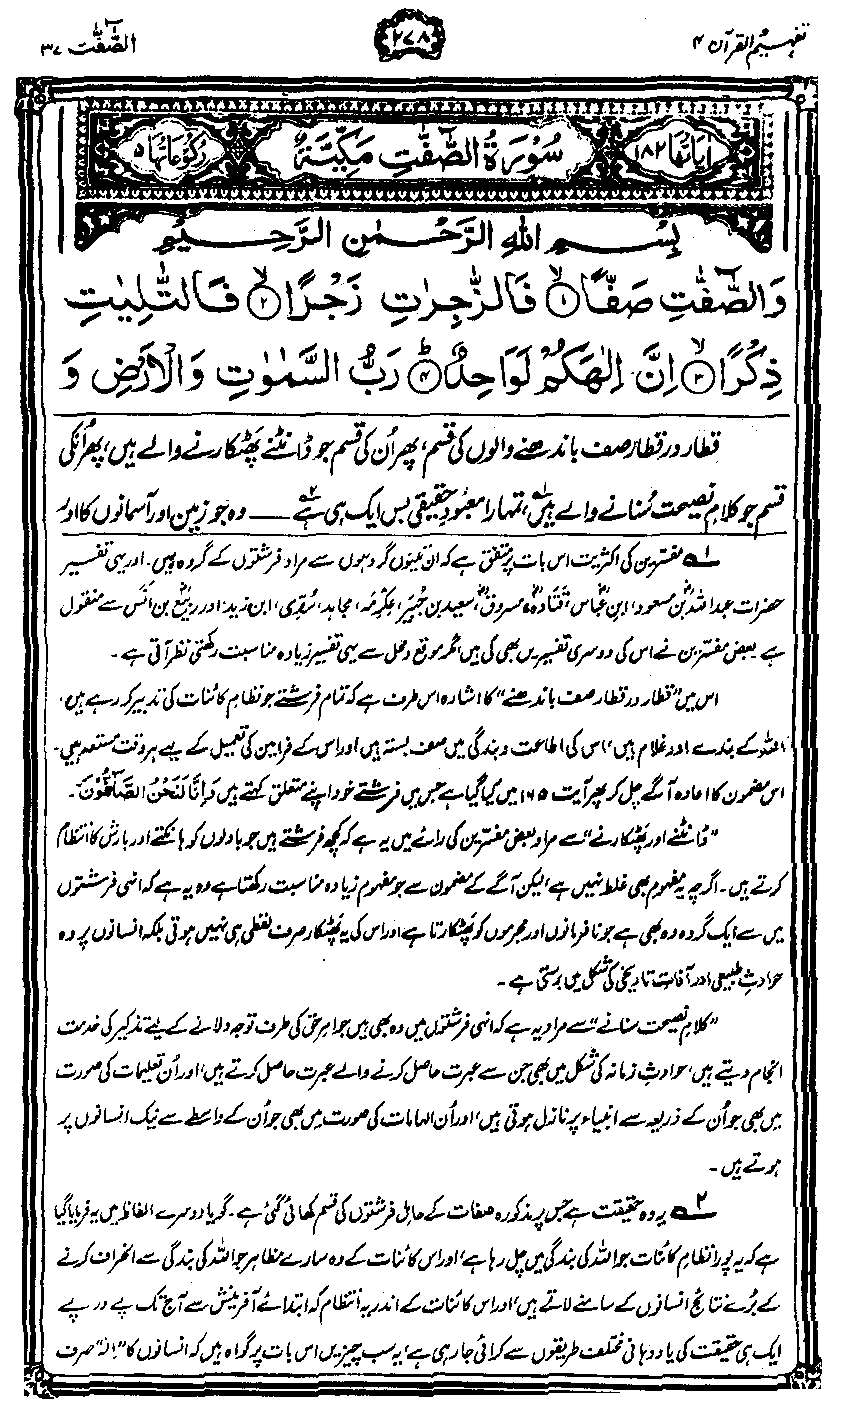 تفہیم القرآن ۴
۲۷۸
الصّٰٓفّٰت ۳۷
اٰیَاتُهَا ۱۸۲
سُوْرَةُ الصّٰٓفّٰتِ مَكِّيَّةٌ
رُكُوْعَاتُهَا ۵
بِسْمِ اللهِ الرَّحْمٰنِ الرَّحِيْمِ
وَالصّٰٓفّٰتِ صَفًّا ۙ﴿۱﴾ فَالزّٰجِرٰتِ زَجْرًا ۙ﴿۲﴾ فَالتّٰلِيٰتِ
ذِكْرًا ۙ﴿۳﴾ اِنَّ اِلٰهَكُمْ لَوَاحِدٌ ؕ﴿۴﴾ رَبُّ السَّمٰوٰتِ وَالْاَرْضِ وَ
قطار در قطار صف باندھنے والوں کی قسم، پھر اُن کی قسم جو ڈانٹنے پھٹکارنے والے ہیں، پھر اُنکی
قسم جو کلامِ نصیحت سُنانے والے ہیں،۱ تمہارا معبودِ حقیقی بس ایک ہی ہے۲ ــــ وہ جو زمین اور آسمانوں کا اور
۱ے مفسّرین کی اکثریت اس بات پر متفق ہے کہ ان تینوں گروہوں سے مراد فرشتوں کے گروہ ہیں۔ اور یہی تفسیر
حضرات عبداللہؓ بن مسعود، ابن عباسؓ، قتادہؒ، مسروقؒ، سعید بن جُبیر، عکرمہ، مجاہد، سُدّی، ابن زید اور ربیعؒ بن انَس سے منقول
ہے۔ بعض مفسّرین نے اس کی دوسری تفسیریں بھی کی ہیں، مگر موقع و محل سے یہی تفسیر زیادہ مناسبت رکھتی نظر آتی ہے۔
اس میں ”قطار در قطار صف باندھنے“ کا اشارہ اس طرف ہے کہ تمام فرشتے جو نظامِ کائنات کی تدبیر کر رہے ہیں،
اللہ کے بندے اور غلام ہیں، اس کی اطاعت و بندگی میں صف بستہ ہیں اور اس کے فرامین کی تعمیل کے لیے ہر وقت مستعد ہیں۔
اس مضمون کا اعادہ آگے چل کر پھر آیت ۱۶۵ میں کیا گیا ہے جس میں فرشتے خود اپنے متعلق کہتے ہیں وَاِنَّا لَنَحْنُ الصَّآفُّوْنَ۔
”ڈانٹنے اور پھٹکارنے“ سے مراد بعض مفسّرین کی رائے میں یہ ہے کہ کچھ فرشتے ہیں جو بادلوں کو ہانکتے اور بارش کا انتظام
کرتے ہیں۔ اگرچہ یہ مفہوم بھی غلط نہیں ہے، لیکن آگے کے مضمون سے جو مفہوم زیادہ مناسبت رکھتا ہے وہ یہ ہے کہ انہی فرشتوں
میں سے ایک گروہ وہ بھی ہے جو نافرمانوں اور مجرموں کو پھٹکارتا ہے اور اس کی یہ پھٹکار صرف لفظی ہی نہیں ہوتی بلکہ انسانوں پر وہ
حوادثِ طبیعی اور آفاتِ تاریخی کی شکل میں برستی ہے۔
”کلامِ نصیحت سنانے“ سے مراد یہ ہے کہ انہی فرشتوں میں وہ بھی ہیں جو امرِ حق کی طرف توجہ دلانے کے لیے تذکیر کی خدمت
انجام دیتے ہیں، حوادثِ زمانہ کی شکل میں بھی جن سے عبرت حاصل کرنے والے عبرت حاصل کرتے ہیں، اور اُن تعلیمات کی صورت
میں بھی جو اُن کے ذریعہ سے انبیاء پر نازل ہوتی ہیں، اور اُن الہامات کی صورت میں بھی جو اُن کے واسطے سے نیک انسانوں پر
ہوتے ہیں۔
۲ے یہ وہ حقیقت ہے جس پر مذکورہ صفات کے حامل فرشتوں کی قسم کھائی گئی ہے۔ گویا دوسرے الفاظ میں یہ فرمایا گیا
ہے کہ یہ پورا نظامِ کائنات جو اللہ کی بندگی میں چل رہا ہے، اور اس کائنات کے وہ سارے مظاہر جو اللہ کی بندگی سے انحراف کرنے
کے بُرے نتائج انسانوں کے سامنے لاتے ہیں، اور اس کائنات کے اندر یہ انتظام کہ ابتدائے آفرینش سے آج تک پے در پے
ایک ہی حقیقت کی یاد دہانی مختلف طریقوں سے کرائی جا رہی ہے، یہ سب چیزیں اس بات پر گواہ ہیں کہ انسانوں کا ”الٰہ“ صرف